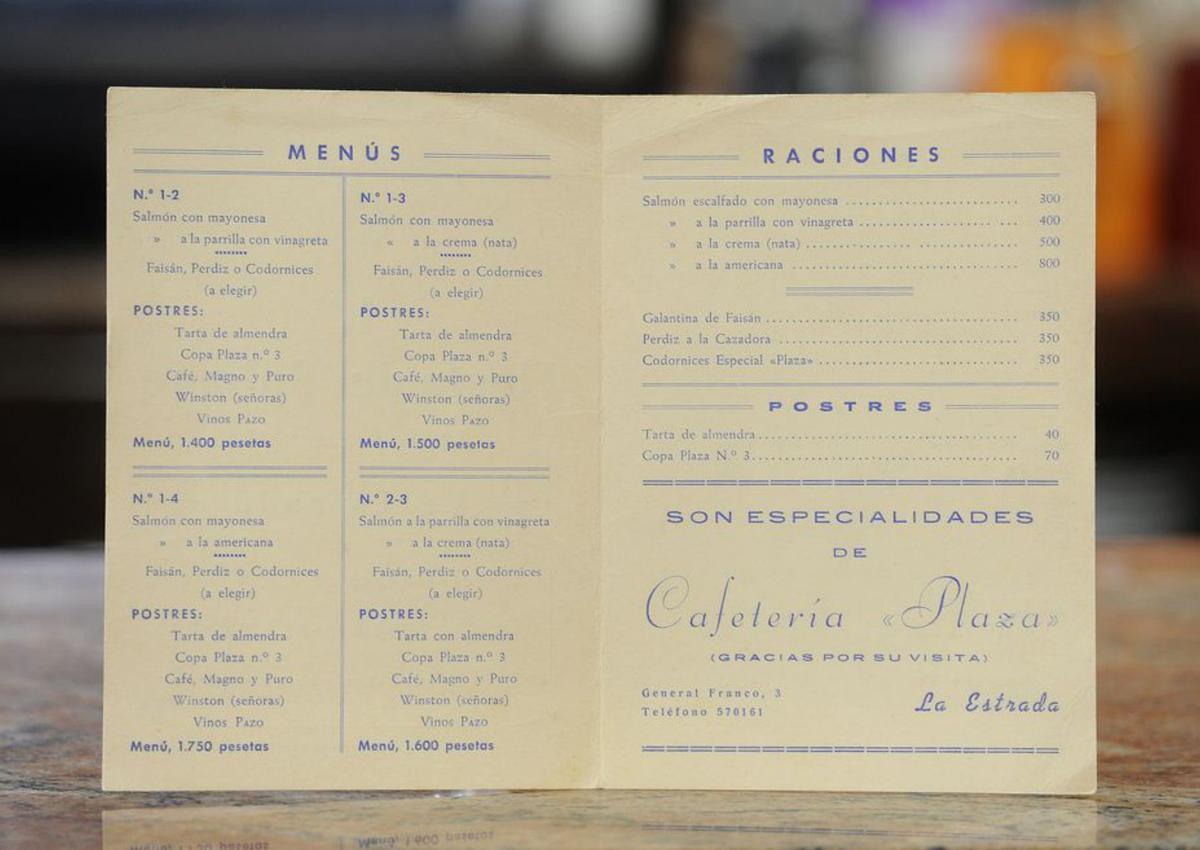 MENÚS
N.º 1-2
Salmón con mayonesa
» a la parrilla con vinagreta
Faisán, Perdiz o Codornices
(a elegir)
POSTRES:
Tarta de almendra
Copa Plaza n.º 3
Café, Magno y Puro
Winston (señoras)
Vinos PAZO
Menú, 1.400 pesetas
N.º 1-3
Salmón con mayonesa
« a la crema (nata)
Faisán, Perdiz o Codornices
(a elegir)
POSTRES:
Tarta de almendra
Copa Plaza n.º 3
Café, Magno y Puro
Winston (señoras)
Vinos PAZO
Menú, 1.500 pesetas
N.º 1-4
Salmón con mayonesa
» a la americana
Faisán, Perdiz o Codornices
(a elegir)
POSTRES:
Tarta de almendra
Copa Plaza n.º 3
Café, Magno y Puro
Winston (señoras)
Vinos PAZO
Menú, 1.750 pesetas
N.º 2-3
Salmón a la parrilla con vinagreta
» a la crema (nata)
Faisán, Perdiz o Codornices
(a elegir)
POSTRES:
Tarta con almendra
Copa Plaza n.º 3
Café, Magno y Puro
Winston (señoras)
Vinos PAZO
Menú, 1.600 pesetas
RACIONES
Salmón escalfado con mayonesa 300
» a la parrilla con vinagreta 400
» a la crema (nata) 500
» a la americana 800
Galantina de Faisán 350
Perdiz a la Cazadora 350
Codornices Especial «Plaza» 350
POSTRES
Tarta de almendra 40
Copa Plaza N.º 3 70
SON ESPECIALIDADES
DE
Cafetería «Plaza»
(GRACIAS POR SU VISITA)
General Franco, 3
Teléfono 570161
La Estrada